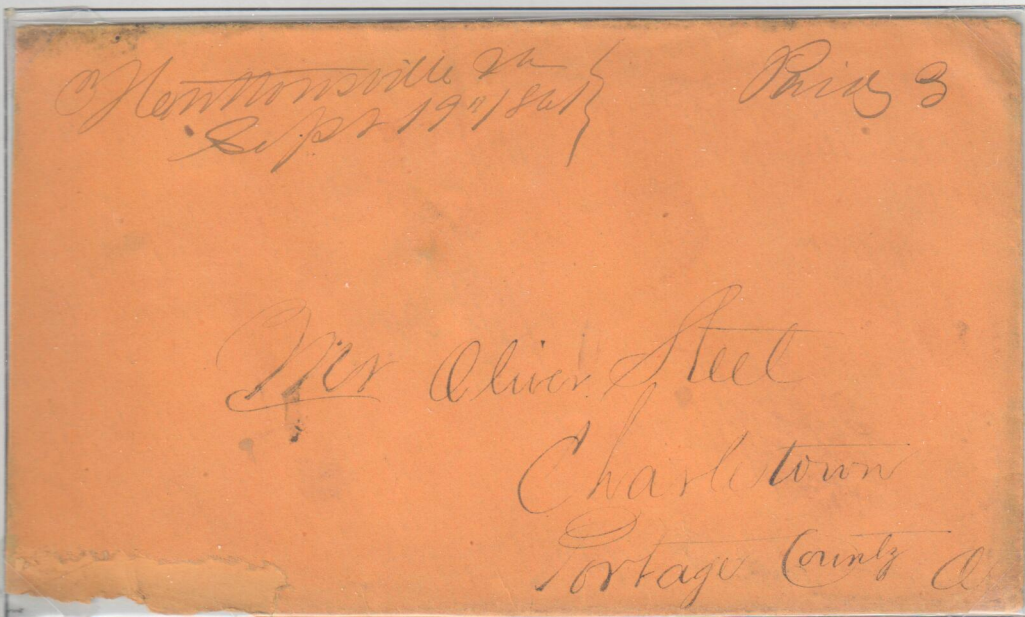 Huttonsville Va
Sept 19" 1861
Paid 3
Mr Oliver Steel
Charlestown
Portage County O